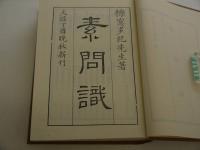 櫟窻多紀先生著
素問識
天保丁酉晚秋新刊